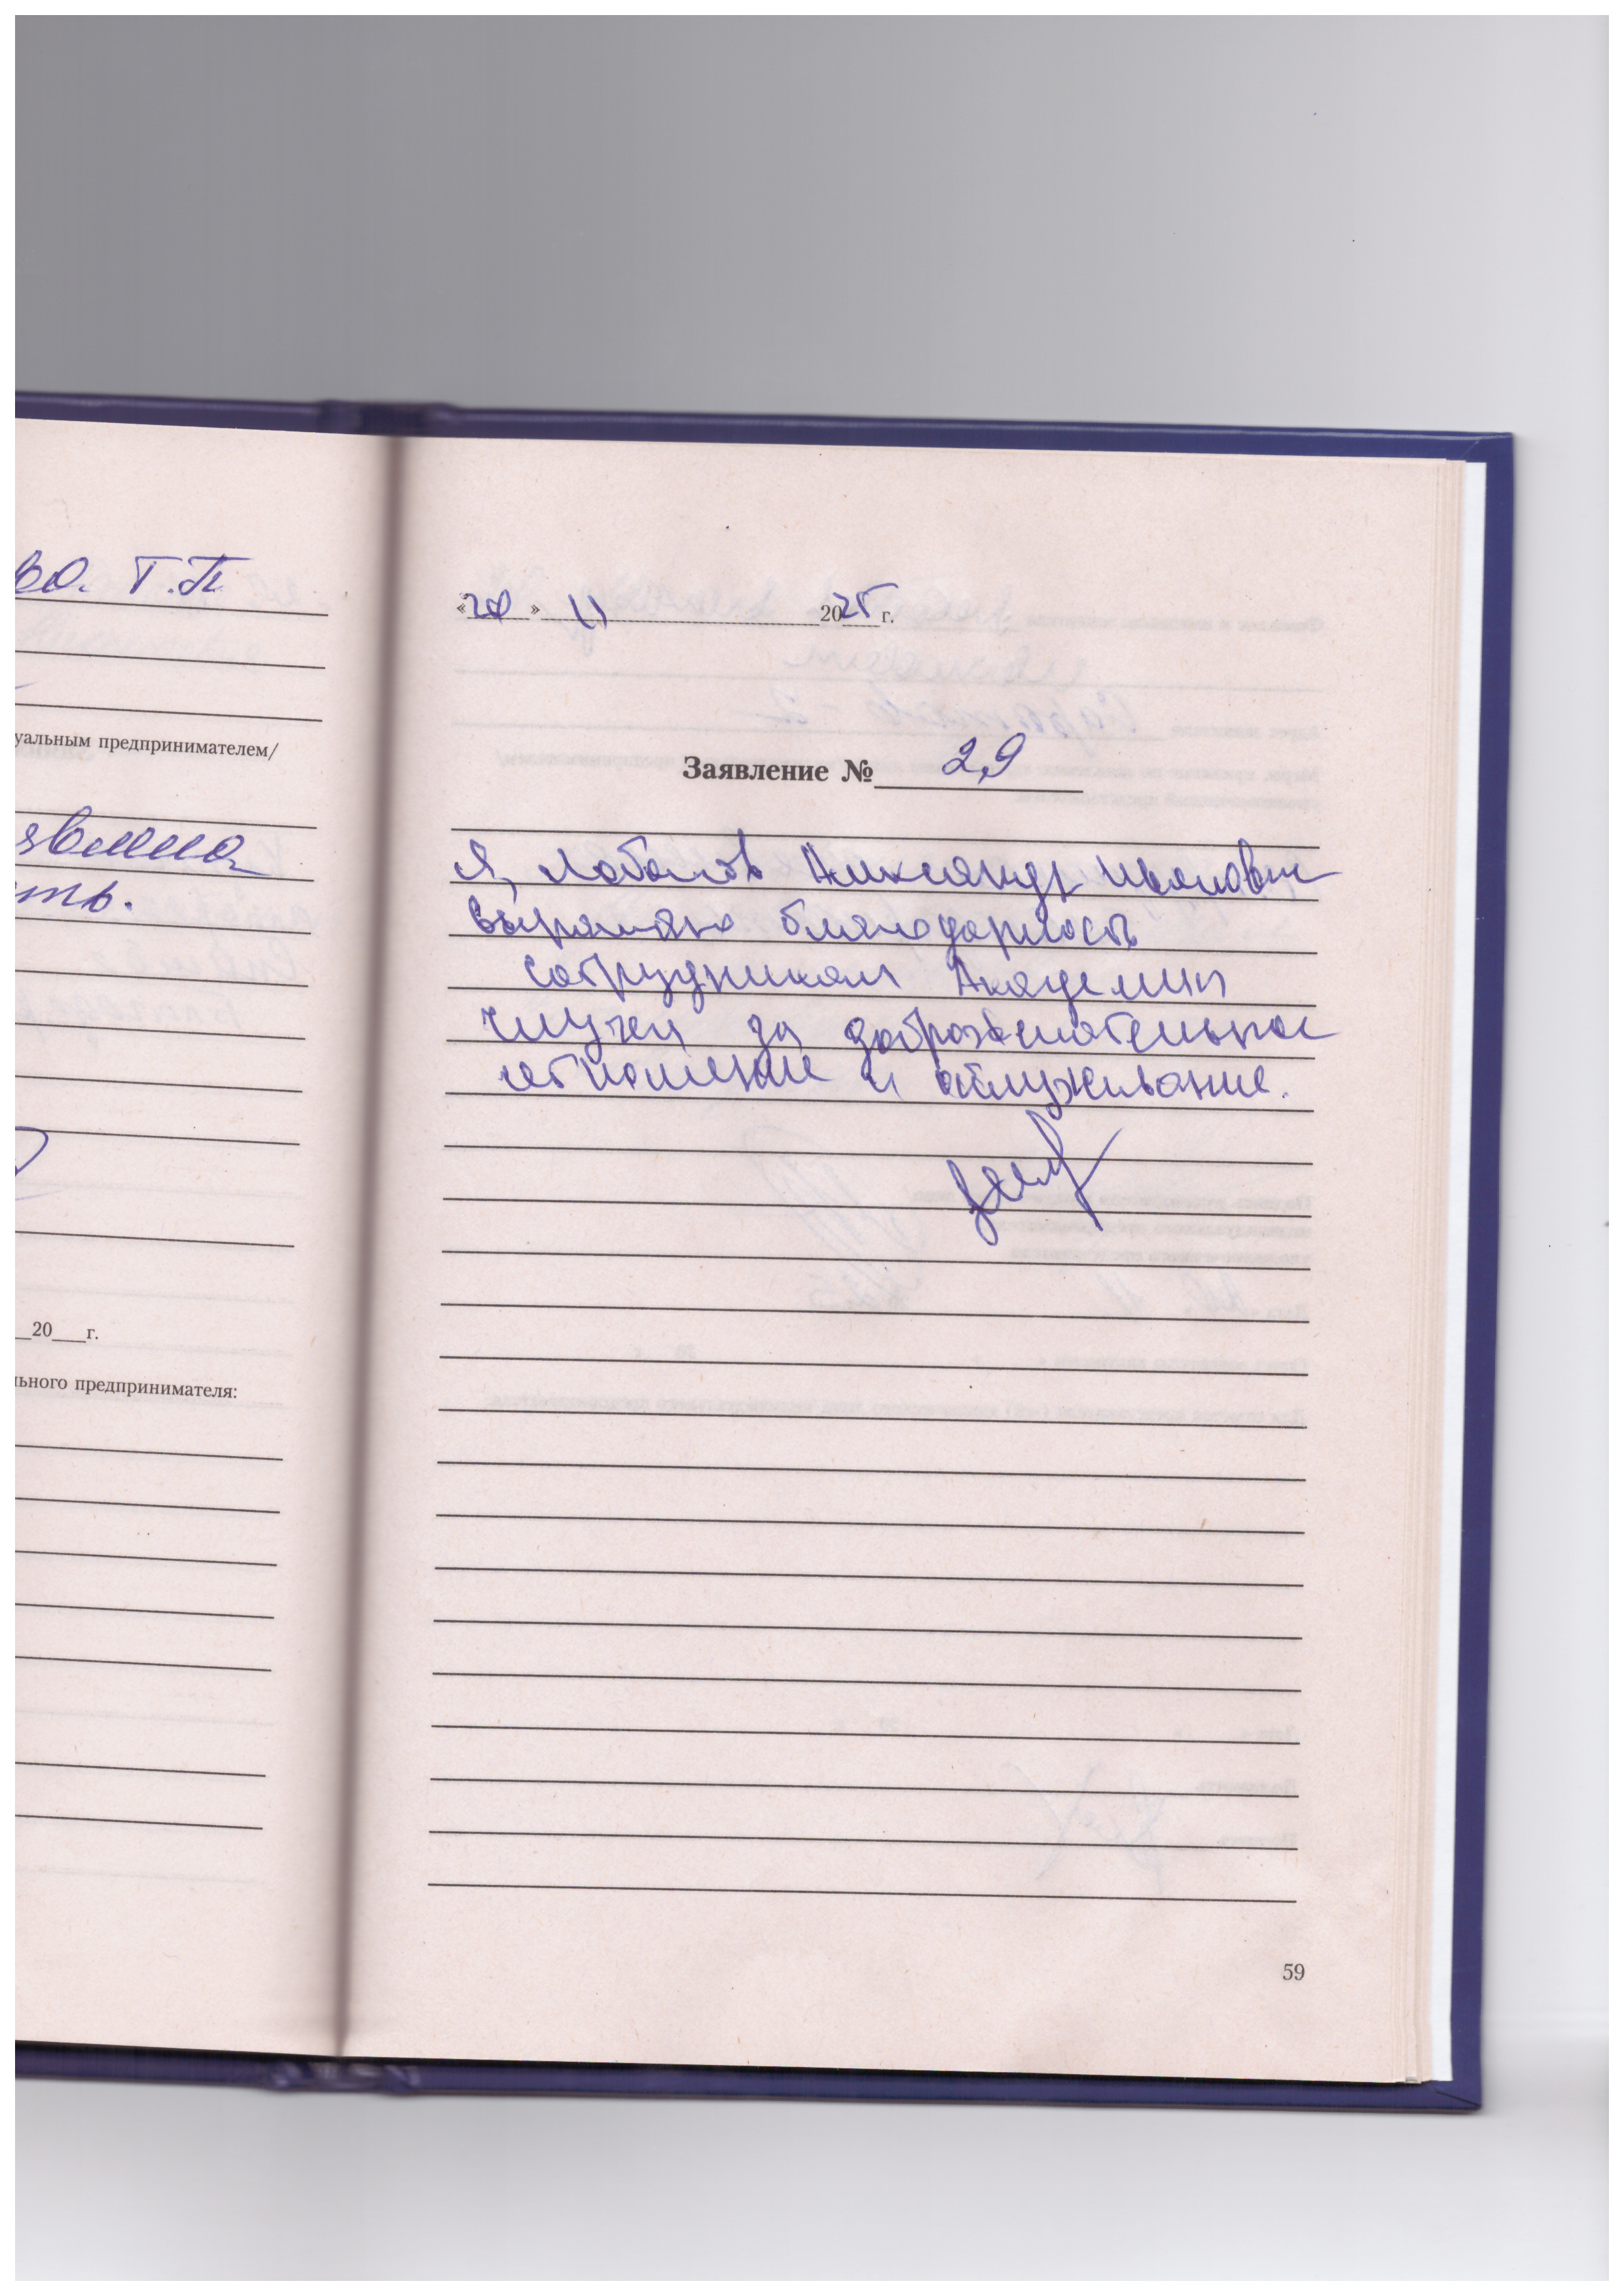 во. Т.П
уальным предпринимателем/
явлена
ть.
20 г.
ьного предпринимателя:
«20» 11 2025 г.
Заявление № 29
Я, Лобанов Александр Иванович
выражаю благодарность
сотрудникам Академии
за доброжелательное
отношение и обслуживание.
59